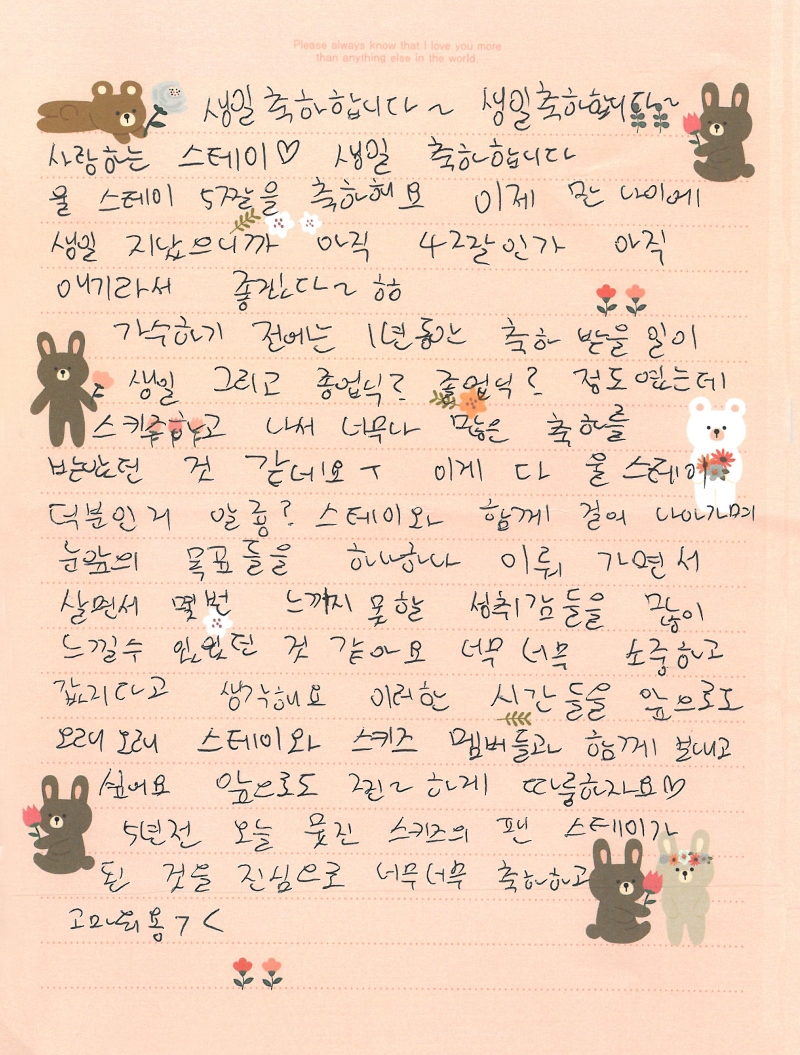 Please always know that I love you more
than anything else in the world.
생일 축하합니다~ 생일축하합니다~
사랑하는 스테이♡ 생일 축하합니다
울 스테이 5짤을 축하해요 이제 만 나이에
생일 지났으니까 아직 4 2살인가 아직
애기라서 좋겠다~ 헝
가수하기 전에는 1년동안 축하 받을 일이
생일 그리고 종업식? 졸업식? 정도였는데
스키즈하고 나서 너무나 많은 축하를
받았던 것 같네요ㅜ 이게 다 울 스테이
덕분인거 알죵? 스테이와 함께 걸어 나아가며
눈앞의 목표들을 하나하나 이뤄 가면서
살면서 몇번 느끼지 못할 성취감들을 많이
느낄수 있었던 것 같아요 너무 너무 소중하고
값지다고 생각해요 이러한 시간들을 앞으로도
오래오래 스테이와 스키즈 멤버들과 함께 보내고
싶어요 앞으로도 찐~하게 따릉하자요♡
5년전 오늘 뭋진 스키즈의 팬 스테이가
된 것을 진심으로 너무너무 축하하고
고마워용 > <